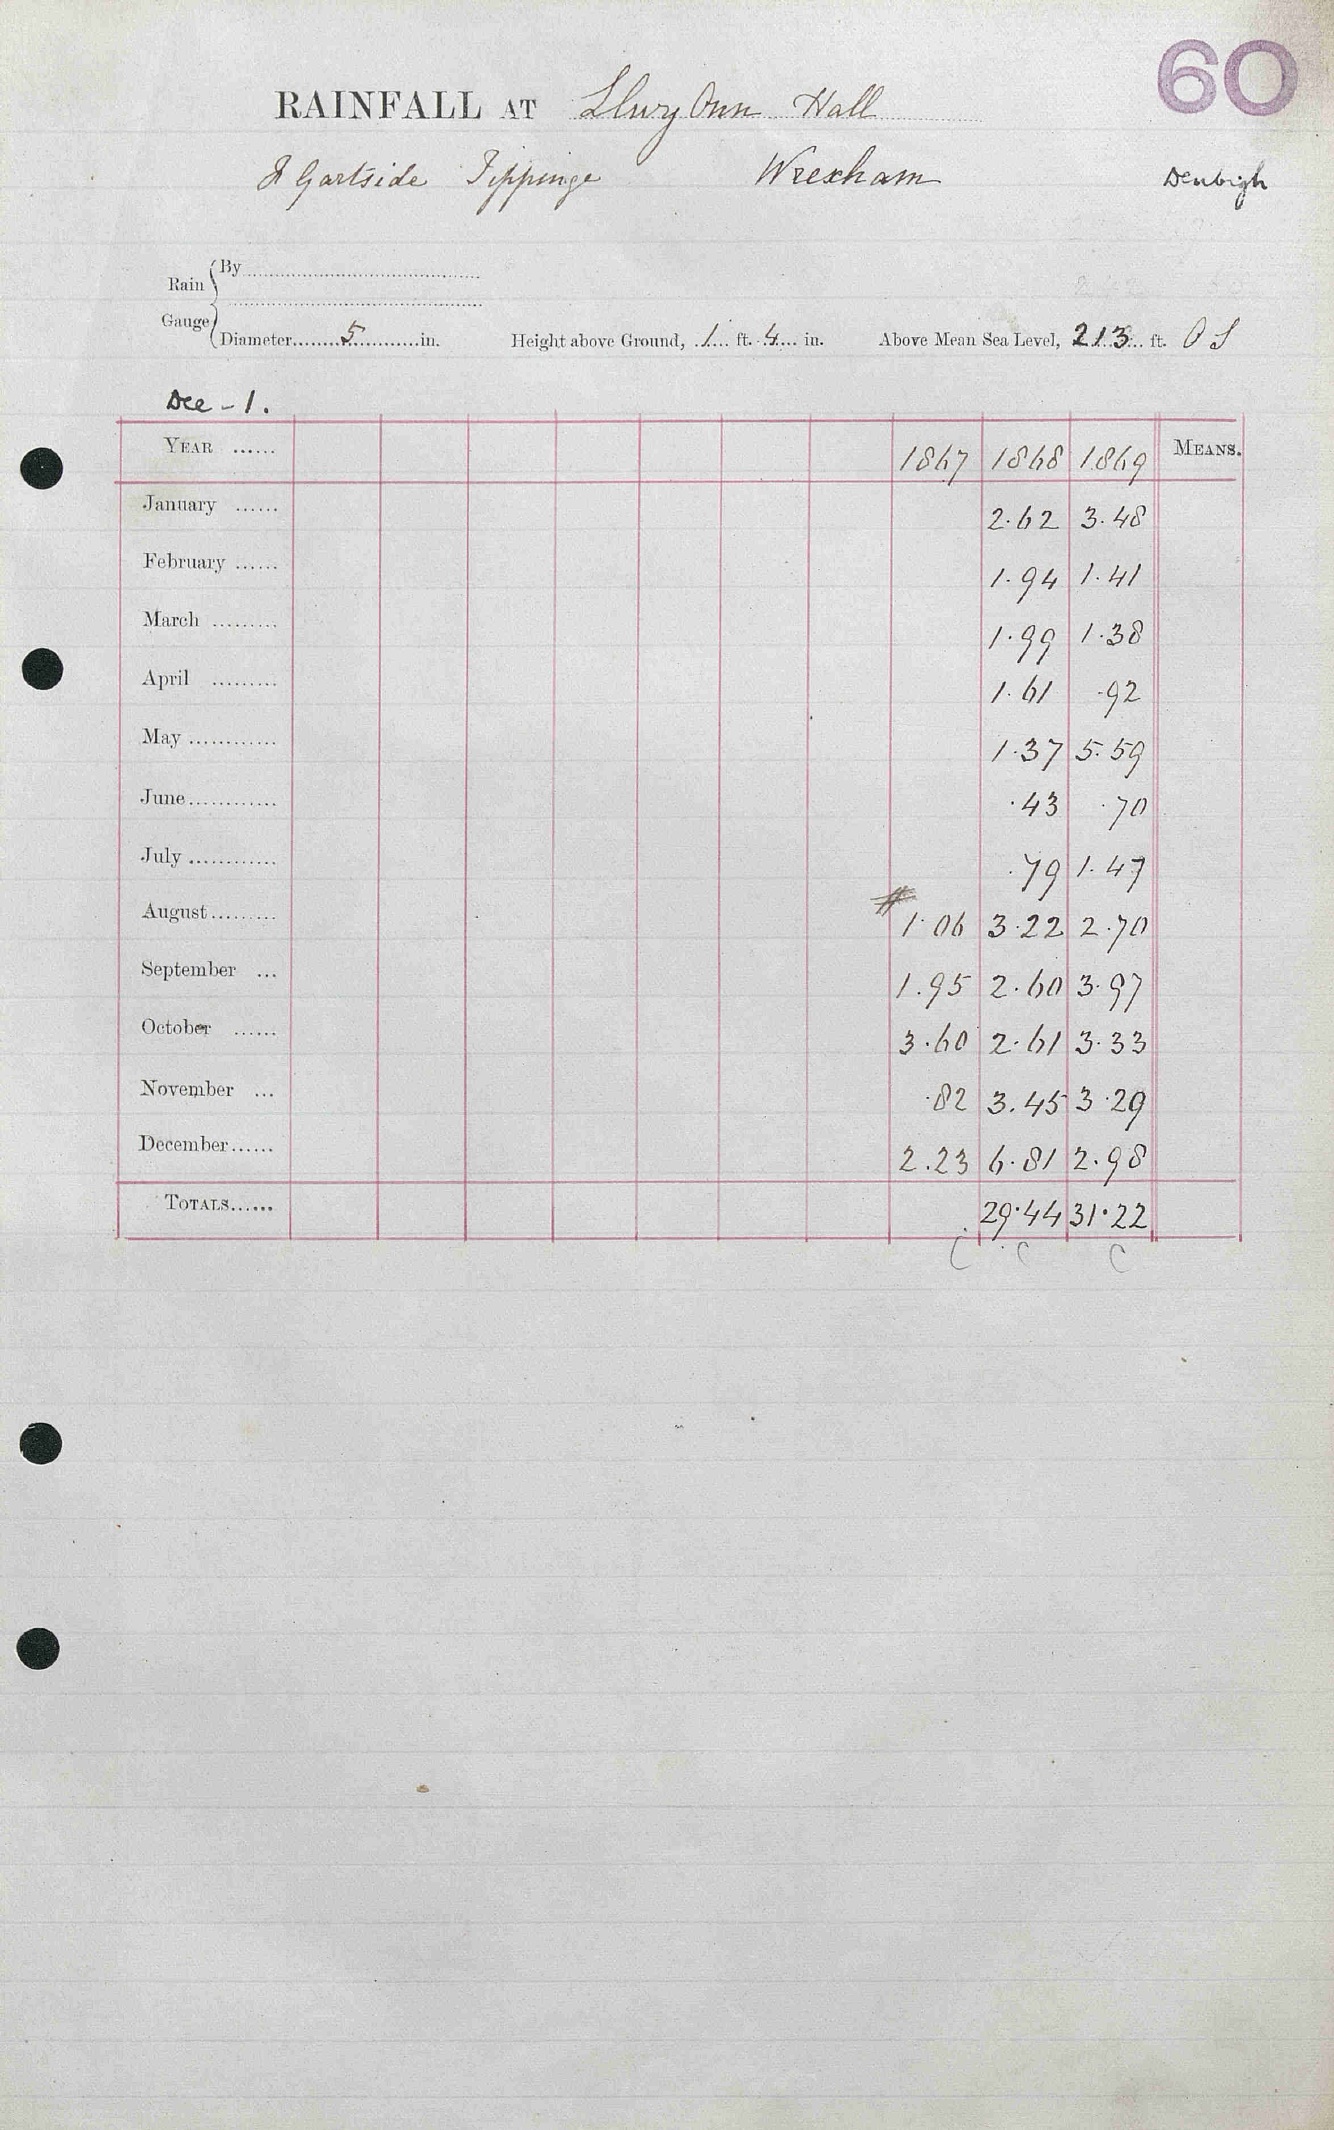 60
RAINFALL AT Llwyn Onn Hall
Gartside Tipping Wrexham Denbigh
Rain Gauge { By
Diameter 5 in. Height above Ground, 1 ft. 4 in. Above Mean Sea Level, 213 ft. O S
Dee - 1.
YEAR ...... 1867 1868 1869 MEANS.
January ...... 2.62 3.48
February ...... 1.94 1.41
March ......... 1.99 1.38
April ......... 1.61 .92
May ............ 1.37 5.59
June ............ .43 .70
July ............ .79 1.47
August ......... # 1.06 3.22 2.70
September ... 1.95 2.60 3.97
October ...... 3.60 2.61 3.33
November ... .82 3.45 3.29
December ...... 2.23 6.81 2.98
TOTALS ...... 29.44 31.22
C C C